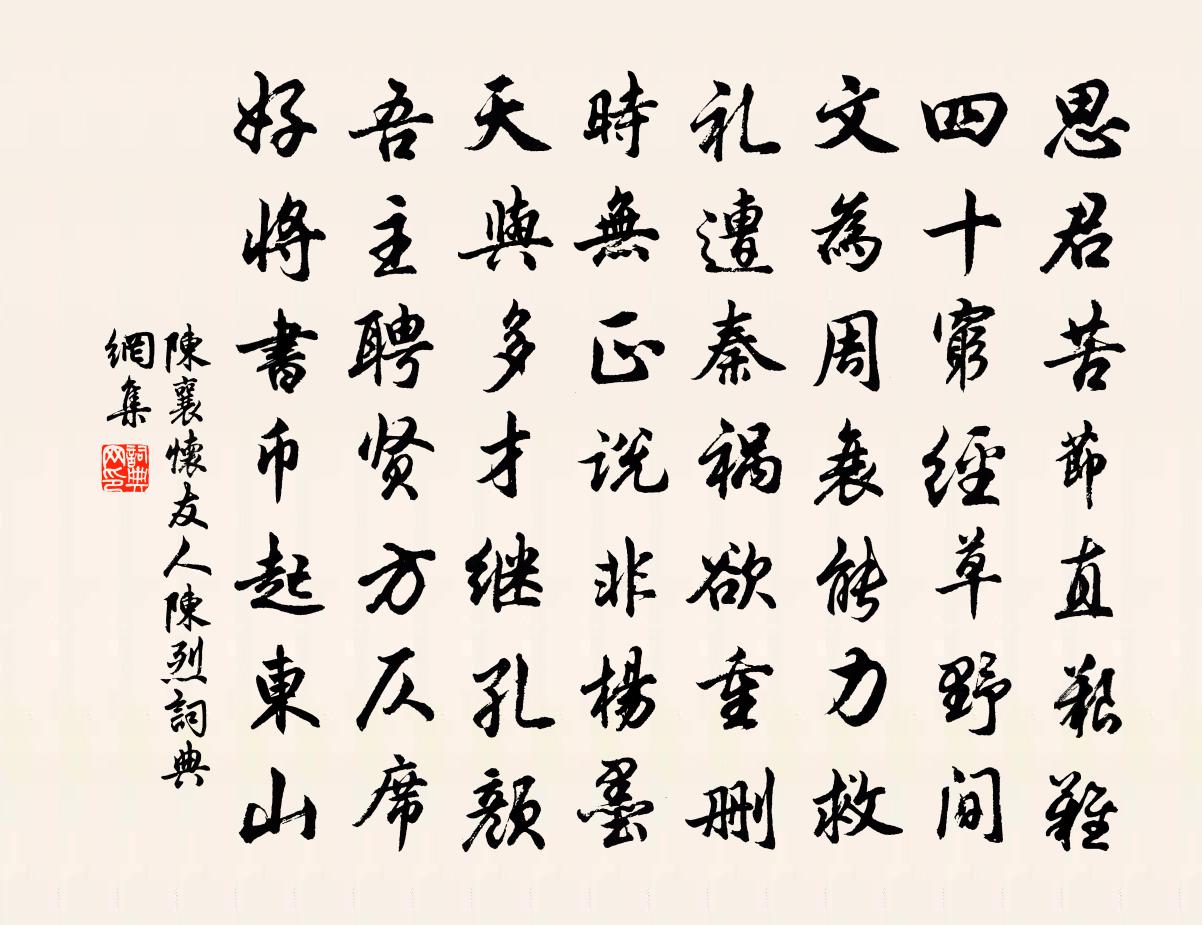 思君苦節直艱難
四十窮經草野间
文為周衰能力救
礼遭秦祸欲重删
時無正说非楊墨
天與多才继孔顏
吾主聘贤方仄席
好將書币起東山
陳襄懷友人陳烈詞典
網集
詞典
网印